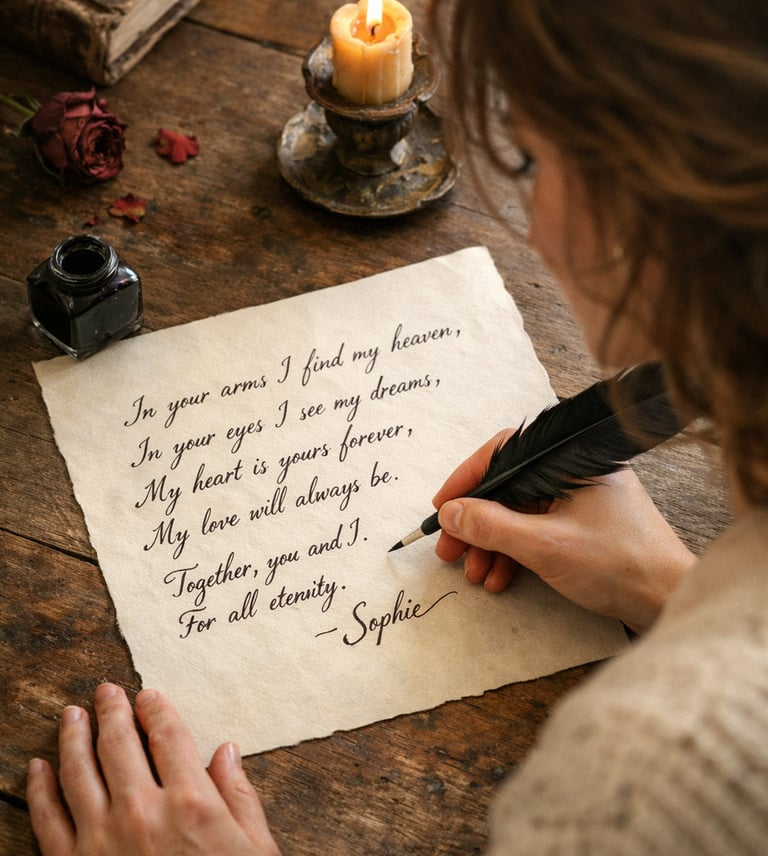 In your arms I find my heaven,
In your eyes I see my dreams,
My heart is yours forever,
My love will always be.
Together, you and I.
For all eternity.
– Sophie